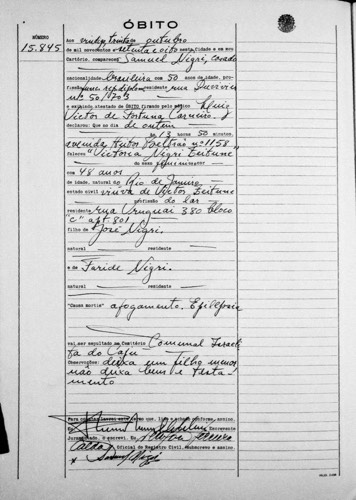 ÓBITO
NÚMERO
15.845
Aos vinte e oito outubro
de mil novecentos setenta e oito nesta cidade e em meu
Cartório, compareceu Samuel Nigri, casado
nacionalidade brasileira com 50 anos de idade, pro-
fissão residente rua
nº 50/903
e exibindo atestado de ÓBITO firmado pelo médico
Victor de Fortuna Carneiro
declarou: Que no dia de ontem
às 13 horas 50 minutos,
avenida nº 1158
faleceu "Victoria Nigri Zeitune"
do sexo feminino
com 48 anos
de idade, natural do Rio de Janeiro
estado civil viuva de Victor Zeitune
profissão do lar
residente rua Uruguai 380 bloco
"C" apt 801
filho de José Nigri.
natural residente
e de Faride Nigri.
natural residente
"Causa mortis" afogamento. Epilepsia
vai ser sepultado em Cemitério Comunal Israeli
ta do Caju
Observações: deixa um filho menor
não deixa bens e testa-
mento
Para constar lavrei este que, lido e achado conforme, assino.
Escrevente
Juramentado, o escrevi. Eu
Oficial do Registro Civil, subscrevo e assino.